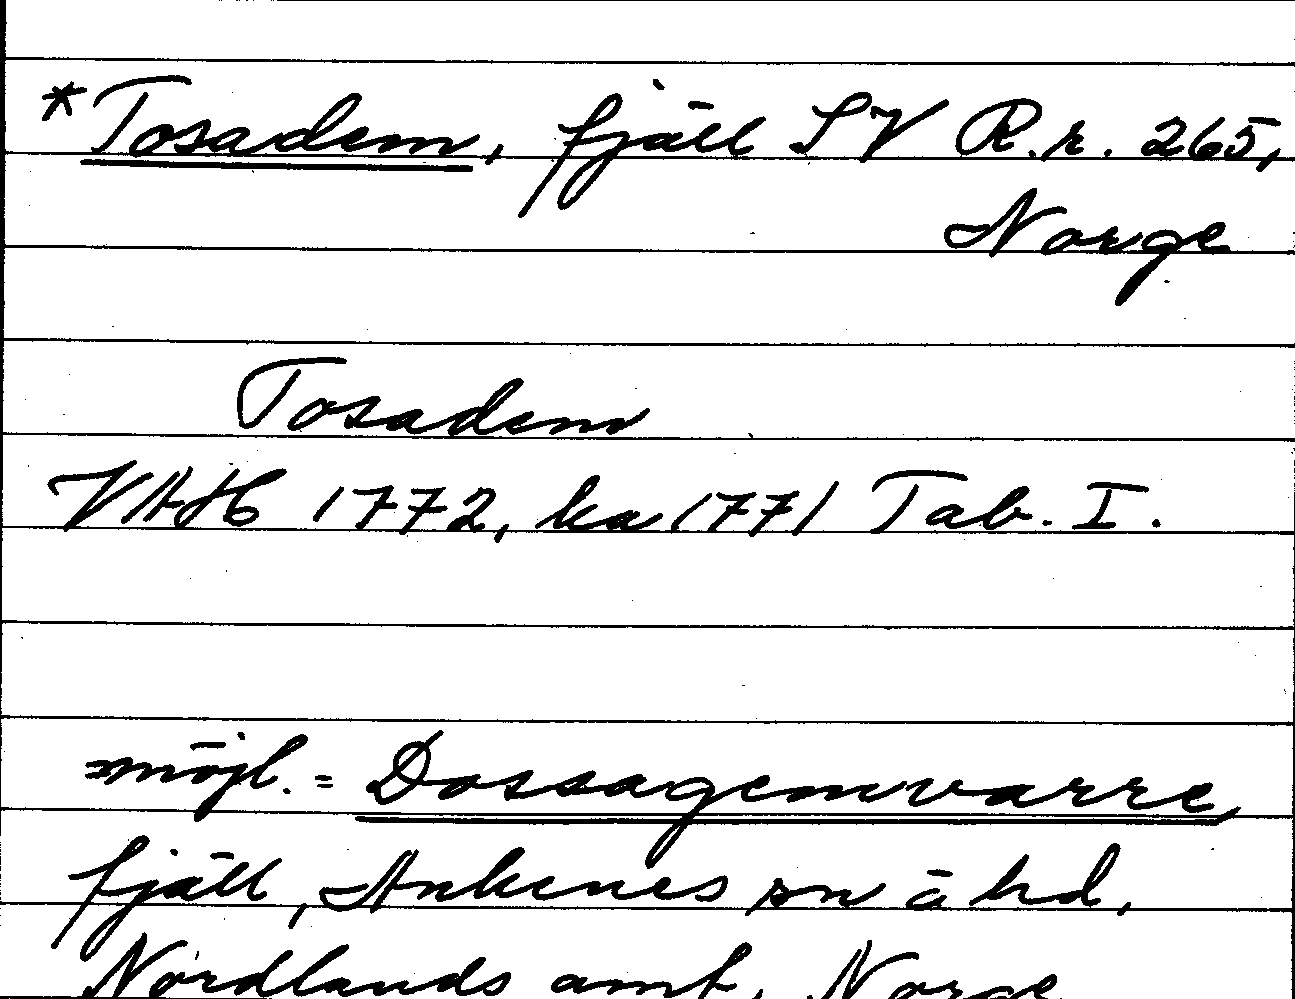 *Tosadem, fjäll SV R.r. 265,
Norge
Tosadem
VHAH 1772, ka 1771 Tab. I.
möjl. = Dossagemvarre,
fjäll, Ankenes sn å hd,
Nordlands amt, Norge